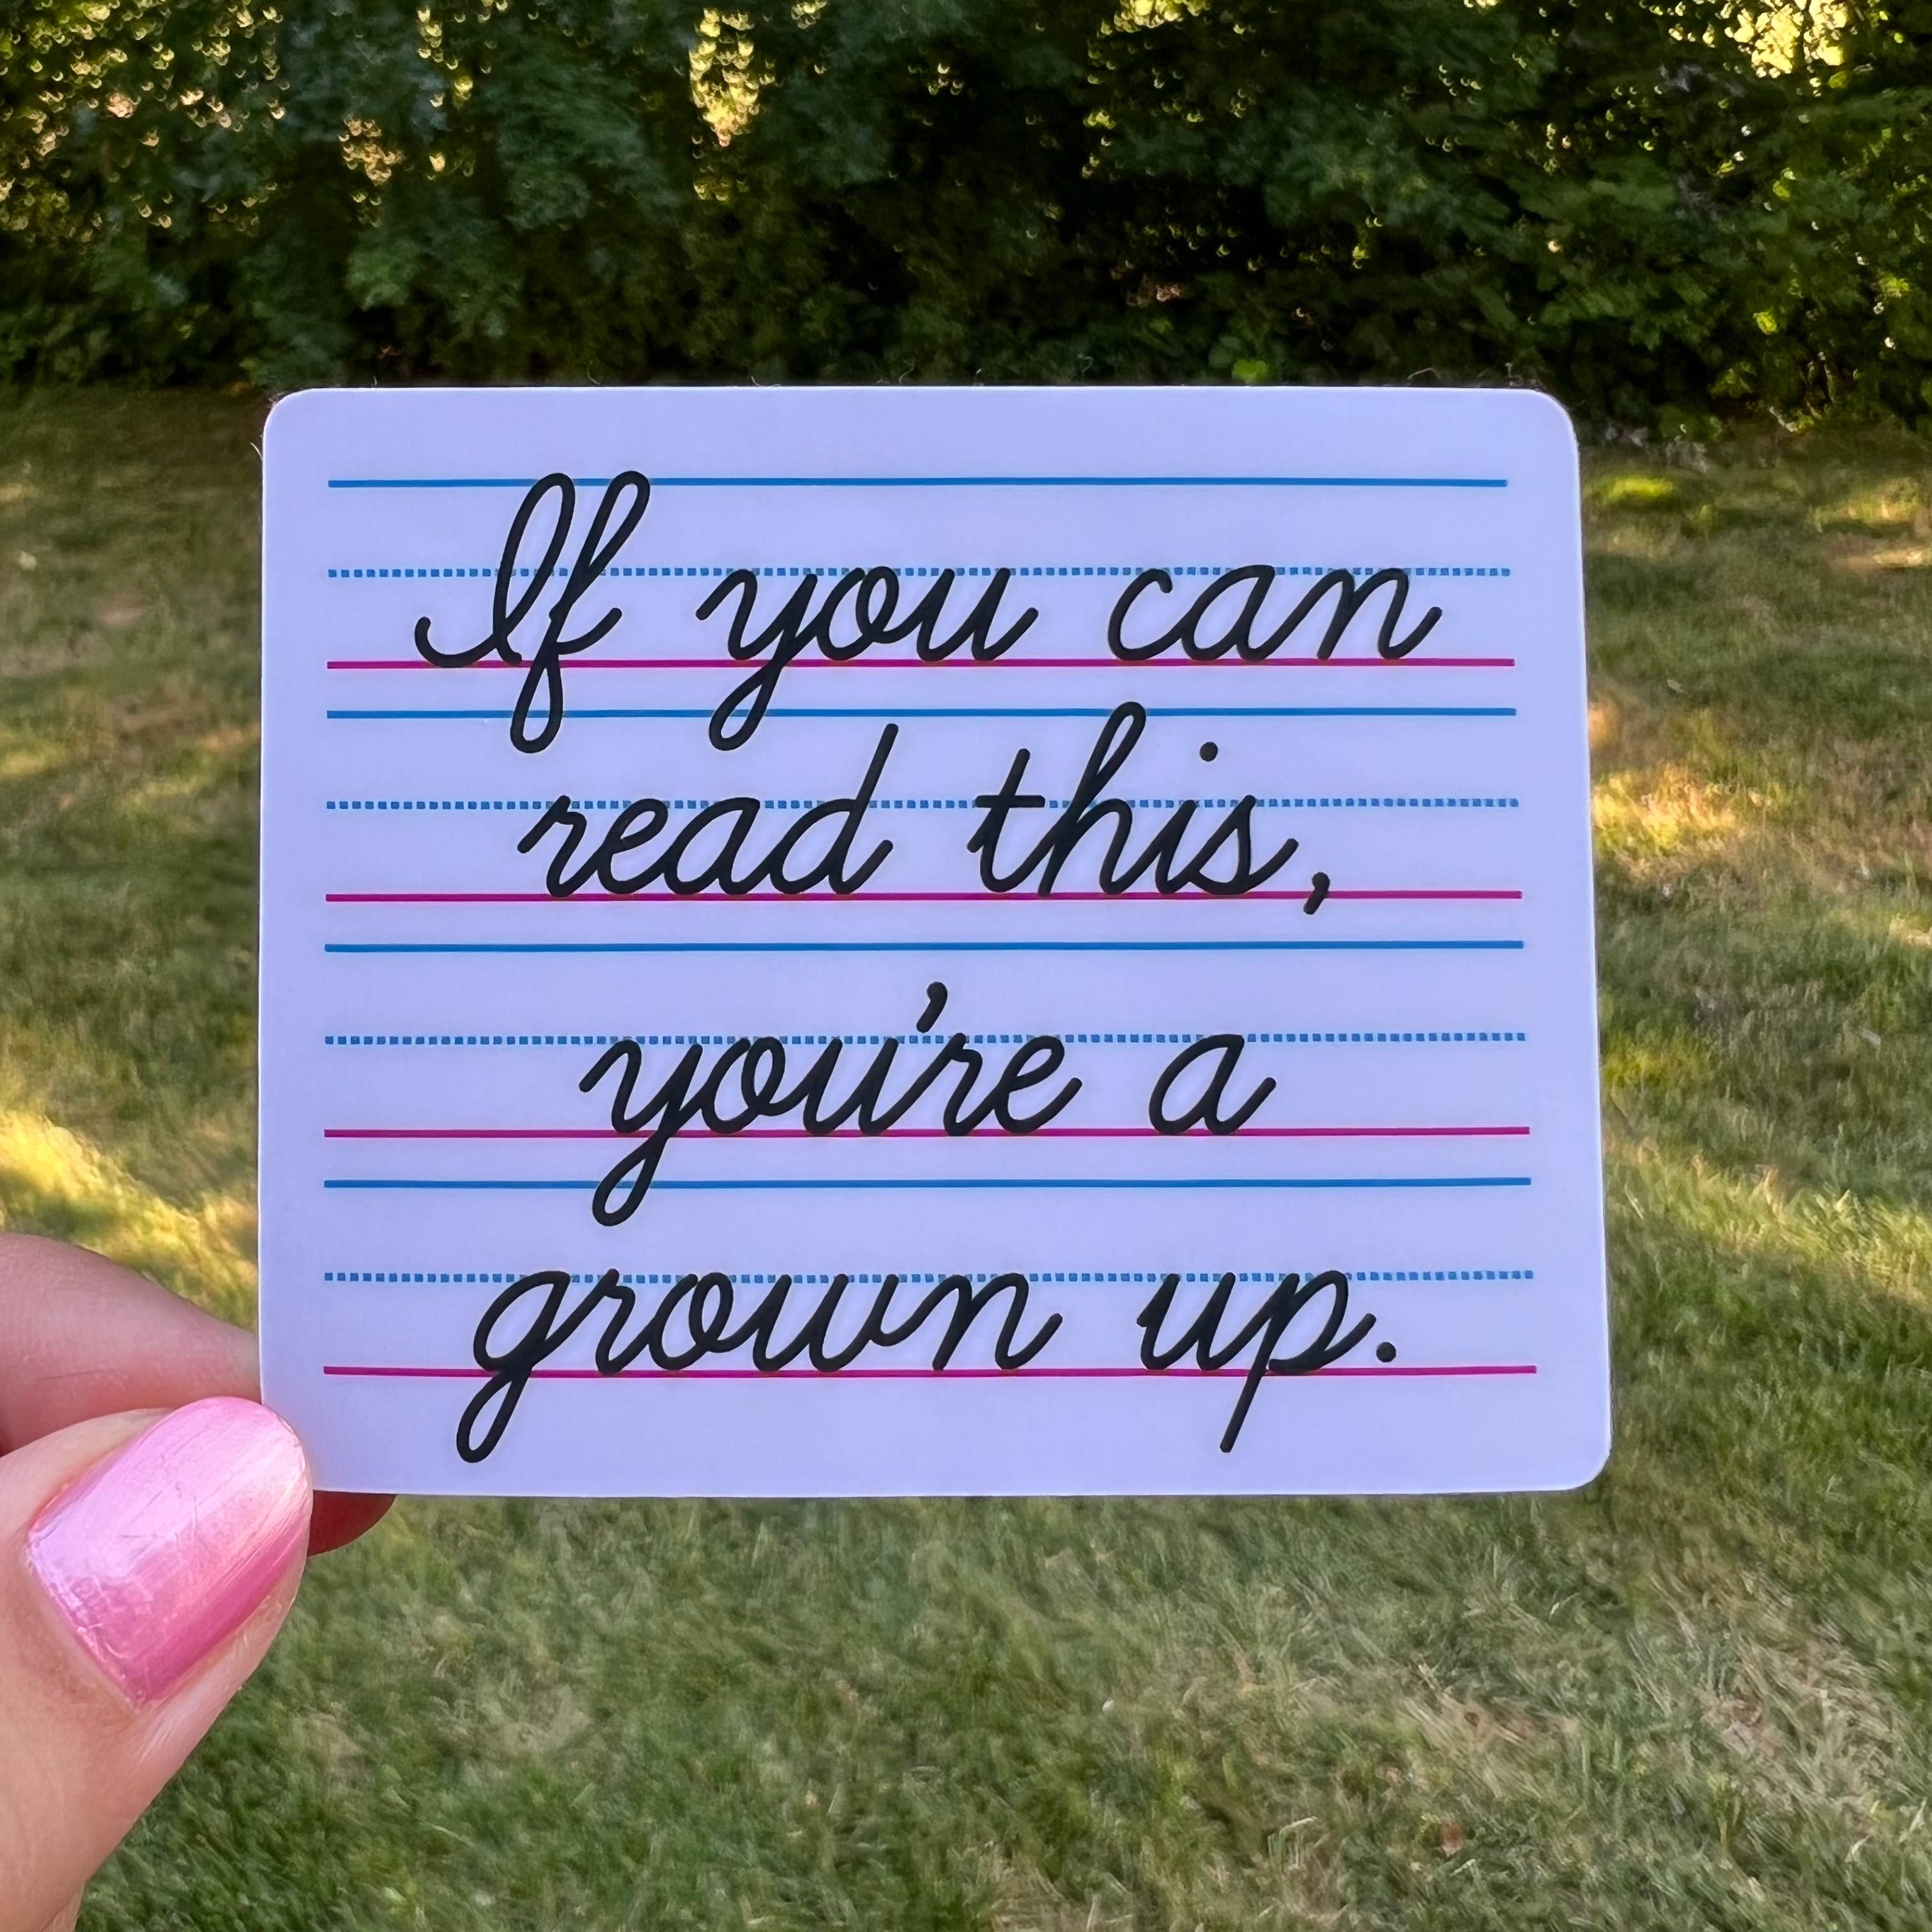 If you can
read this,
you're a
grown up.